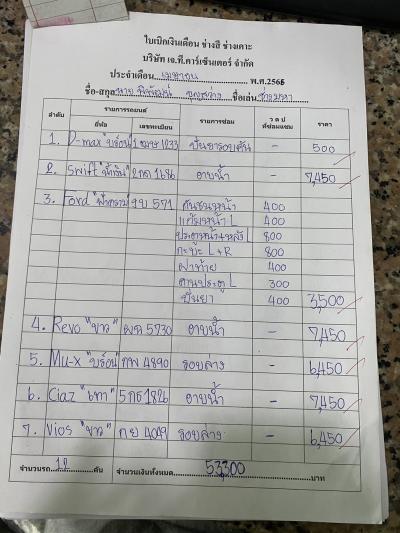 ใบเบิกเงินเดือน ช่างสี ช่างเคาะ
บริษัท เจ.ที.คาร์เซ็นเตอร์ จำกัด
ประจำเดือน เมษายน พ.ศ.2565
ชื่อ-สกุล นาย ชื่อเล่น
ลำดับ รายการรถยนต์ รายการซ่อม ว ด ป ที่ซ่อมแซม ราคา
ยี่ห้อ เลขทะเบียน
1. D-max "บรอนซ์" 1233 ปั้นยารอยคัน - 500
2. Swift 2กด 1686 อาบน้ำ - 7,450
3. Ford 571 กันชนหน้า 400
แก้มหน้า L 400
ประตูหน้า+หลัง L 800
กะทะ L+R 800
ฝาท้าย 400
คานประตู L 300
ปั้นยา 400 3,500
4. Revo "ขาว" 5730 อาบน้ำ - 7,450
5. Mu-x 4890 รอบล่าง - 6,450
6. Ciaz "เทา" 5กธ 1826 อาบน้ำ - 7,450
7. Vios "ขาว" กย 4049 รอบล่าง - 6,450
จำนวนรถ 12 คัน จำนวนเงินทั้งหมด 53300 บาท